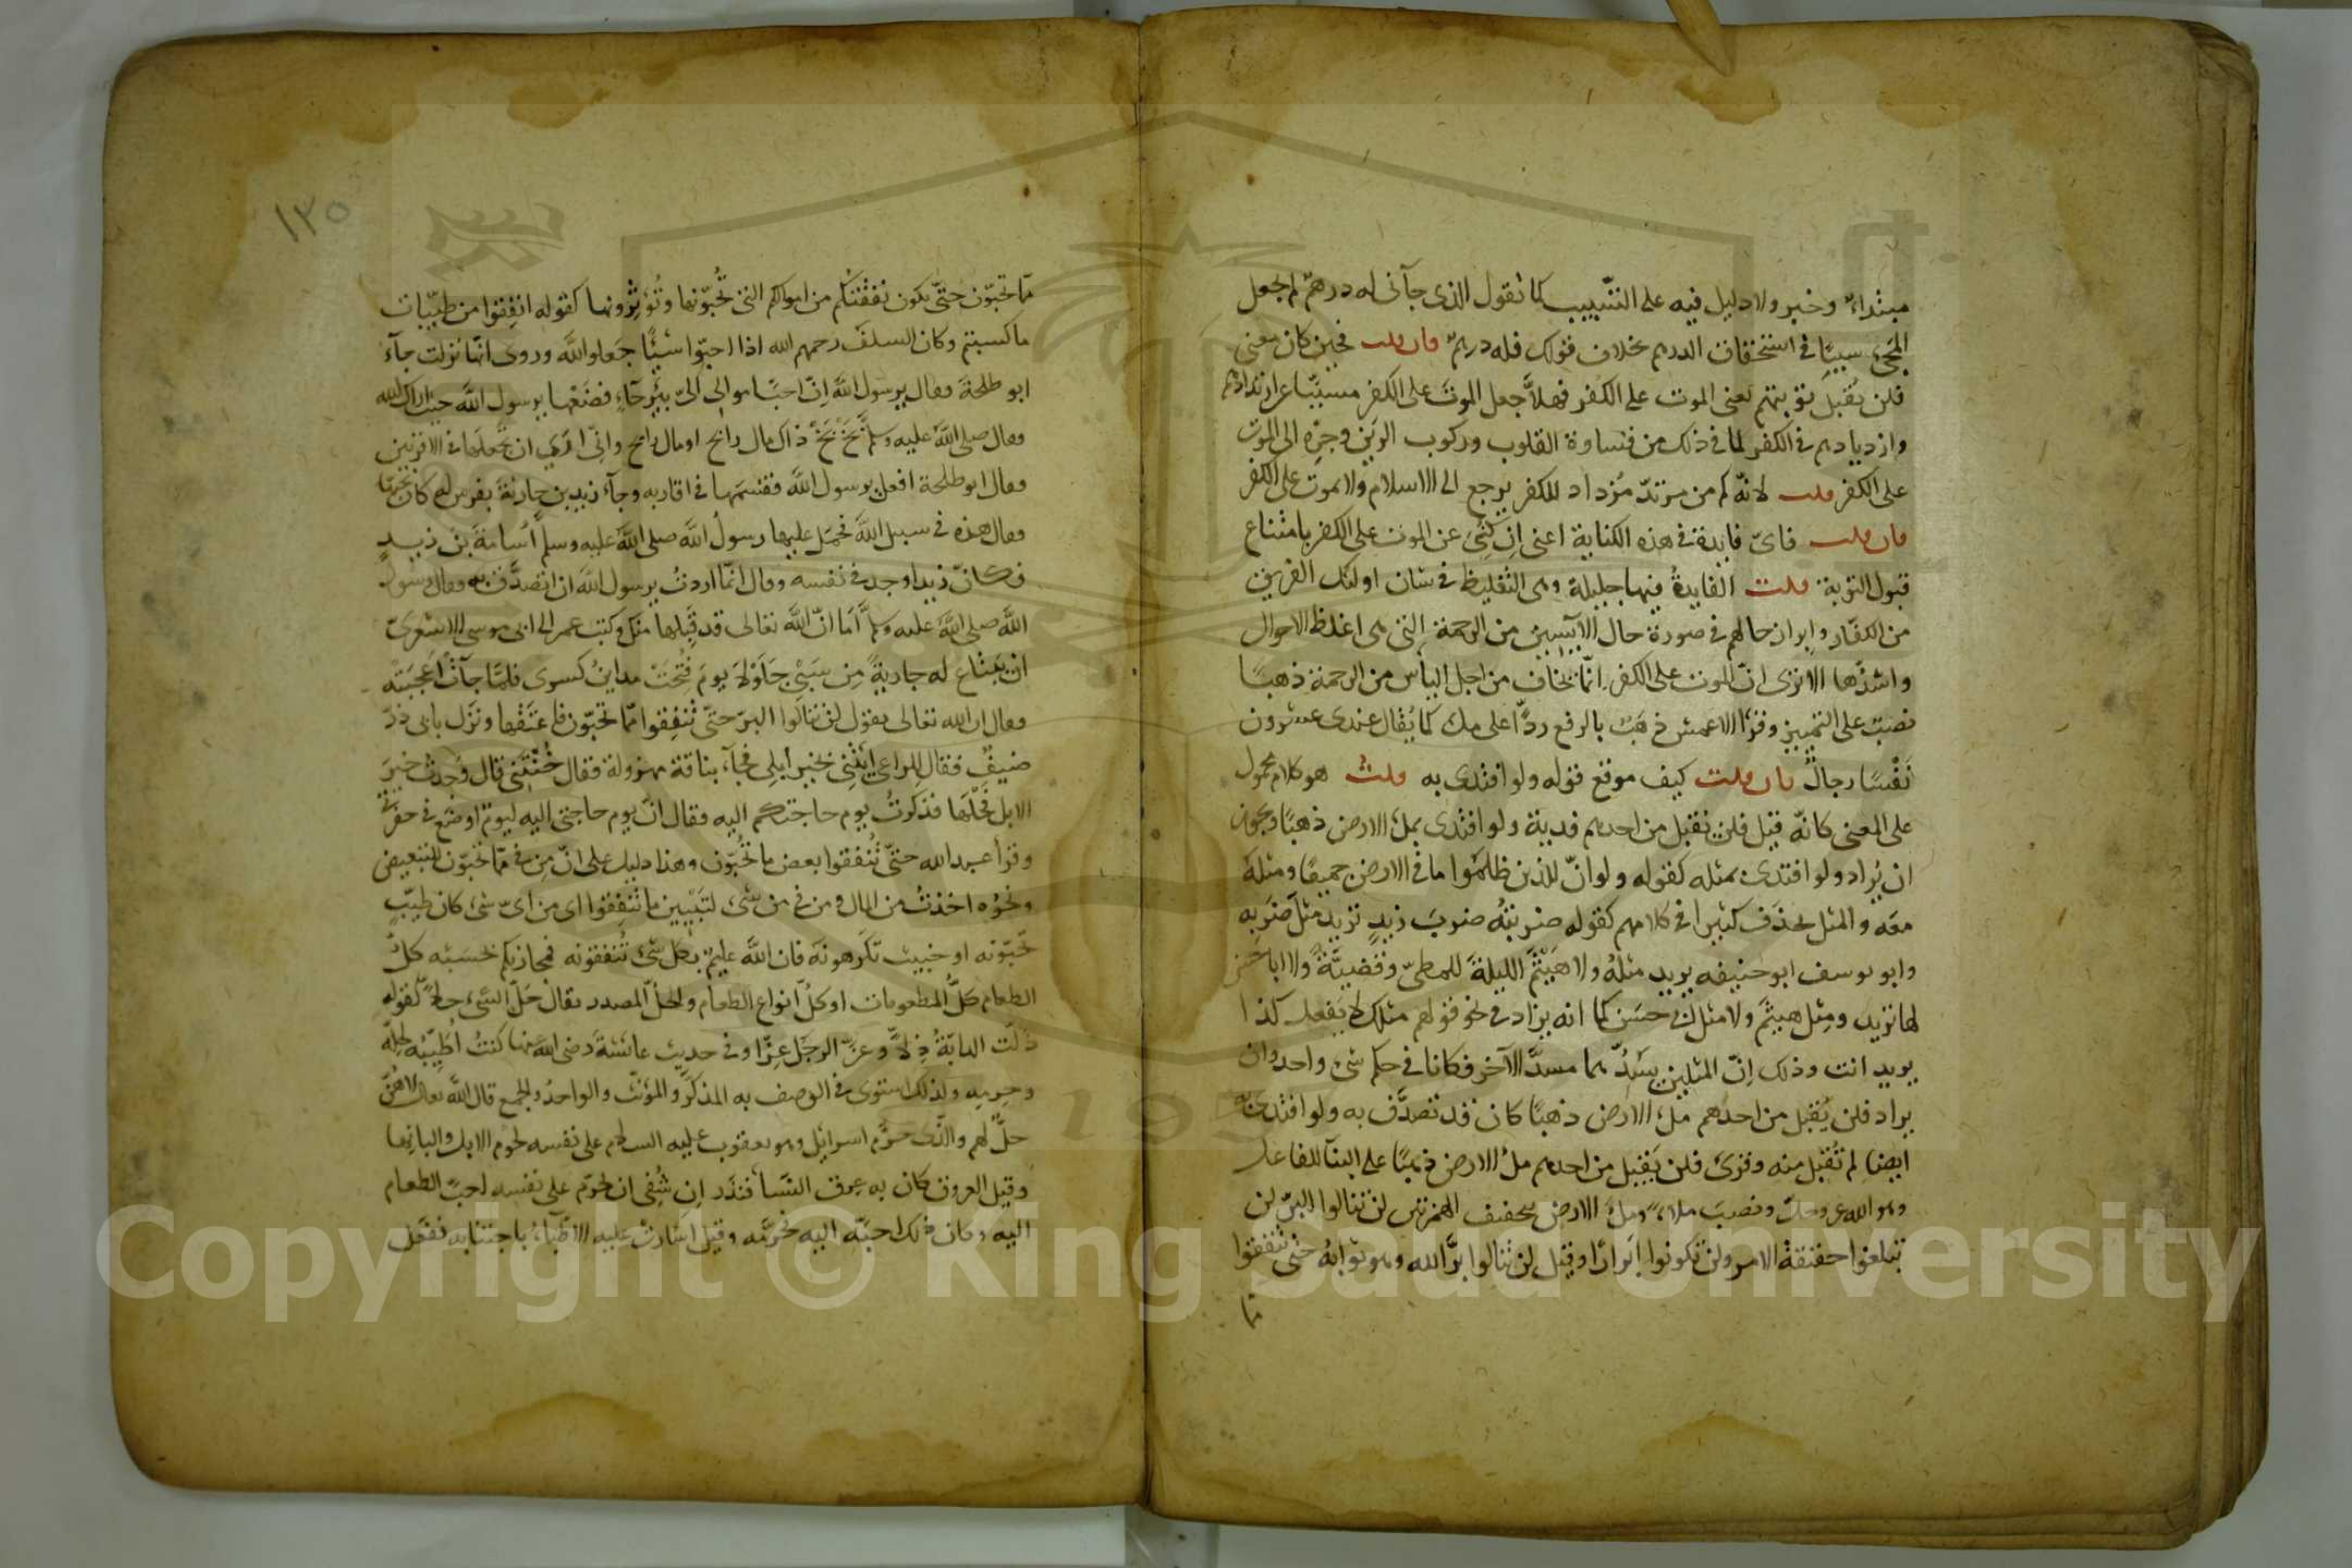 مبتداءٌ وخبر ولا دليل فيه على التسبيب كما تقول الذى جآنى له درهمٌ لم تجعل
المجئ سببًا فى استحقاق الدرهم بخلاف قولك فله درهمٌ فان قلت فحين كان معنى
فلن تقبلَ توبتهم بمعنى الموت على الكفر فهلّا جعل الموت على الكفر مسبّبًا عن ارتدادهم
وازديادهم فى الكفر لما فى ذلك من قساوة القلوب وركوب الرين وجرّه الى الموت
على الكفر قلت لانّه كم من مرتدّ مُزداد للكفر يرجع الى الاسلام ولا يموت على الكفر
فان قلت فاىّ فايدة فى هذه الكناية اعنى ان كُنِىَ عن الموت على الكفر بامتناع
قبول التوبة قلت الفايدةُ فيها جليلة وهى التغليظ فى شان اولئك الفريق
من الكفّار وابراز حالهم فى صورة حال الآيسين من الرحمة التى هى اغلظ الاحوال
واشدّها الا ترى انّ الموت على الكفر انّما يخاف من اجل اليأس من الرحمة ذهبًا
نصبٌ على التمييز وقرأ الاعمش ذهبٌ بالرفع ردًّا على ملء كما يُقال عندى عشرون
نَفْسًا رجالٌ فان قلت كيف موقع قوله ولو افتدى به قلتُ هو كلام محمول
على المعنى كانّه قيل فلن تقبل من احدهم فدية ولو افتدى بملء الارض ذهبًا ويجوز
ان يُراد ولو افتدى بمثله كقوله ولو انّ للذين ظلموا ما فى الارض جميعًا ومثله
معه والمثل يحذَف كثيرا فى كلامهم كقوله ضربتهُ ضربَ زيدٍ تريد مثلَ ضربه
وابو يوسف ابو حنيفه يريد مثلهُ ولا هَيْثَمَ الليلةَ للمطىّ وقضيّةً ولا ابا حَسَن
لها تريد ومثل هيثَمَ ولا مثل ابى حسَن كما انه يزاد فى نحو قولهم مثلك لا يَفعل كذا
يريد انت وذلك انّ المثلين يسُدُّ احدهما مسدَّ الآخر فكانا فى حكم شئ واحد وان
يراد فلن يُقبل من احدهم ملء الارض ذهبًا كان قد تصدَّق به ولو افتدى به
ايضا لم تُقبل منه وقرئ فلن يَقبل من احدهم ملءُ الارض ذهبًا على البنآ للفاعل
وهو الله عز وجلّ ونصبَ ملءَ ومل الارض بتخفيف الهمزتين لن تنالوا البرّ لن
تبلغوا حقيقة الامر ولن تكونوا ابرارًا وقيل لن تنالوا برّ الله وهو ثوابهُ حتى تنفقوا
مّا
١٣٥
ممّا تحبّون حتّى يكون نفقتكم من اموالكم التى تُحبّونها وتُؤثِرونها كقوله انفِقوا من طيّبات
ما كسبتم وكان السلف رحمهم الله اذا احبّوا شيئًا جعلوه للّه وروى انّها نزلت جآء
ابو طلحة وقال يرسول اللّه انّ احبّ اموالى الىّ بيرحآء فضَعْها يرسول اللّه حيث اراك الله
وقال صلى اللّه عليه وسلم بَخْ بَخْ ذاك مال رابح او مال رايح وانّى ارى ان تجعلها فى الاقربين
وقال ابو طلحة افعل يرسول اللّه فقسمها فى اقاربه وجآء زيد بن حارثة بفرس له كان يحبّها
وقال هذه فى سبيل اللّه فحمل عليها رسولُ اللّه صلى اللّه عليه وسلم اُسامَةَ بن زيدٍ
فكانّ زيدا وجد فى نفسه وقال انّما اردتُ يرسول اللّه ان اتصدَّق به وقال رسول
اللّه صلى اللّه عليه وسلم اَمَا انّ اللّه تعالى قد قَبِلها منك وكتب عمر الى ابى موسى الاشعرىّ
ان يبتاع له جاريةً مِن سَبْىِ جَلَوْلَاءَ يومَ فُتحَتْ مداينُ كسرى فلمّا جآتْ اعجبَتْه
وقال ان الله تعالى يقول لن تنالوا البرّ حتّى تُنفِقوا ممّا تحبّون فاعتقها ونزل بابى ذرّ
ضيفٌ فقال للراعى ايتنى بخير ابلى فجآء بناقة مهزولة فقال خُنْتَنى قال وجدت خيرَ
الابل فحْلَها فذكرتُ يوم حاجتكم اليه فقال انّ يوم حاجتى اليه ليوم اوضع فى حفرتى
وقرأ عبد الله حتّى تُنفقوا بعض ما تُحبّون وهذا دليل على انّ مِن فى ممّا تحبّون للتبعيض
ونحوُه اخذتُ من المال ومن فى من شئ لتَبْيين ما تنفِقوا اى من اىّ شئ كان طيّبٍ
تحبّونه او خبيث تكرهونه فان اللّه عليمٌ بكل شئ تُنفقونه فمجازيكم بحسَبه كلُّ
الطعام كلُّ المطعومات او كلُّ انواع الطعام والحلُّ المصدر يقال حَلّ الشئ حِلًّا كقولك
ذلّت الدابّةُ ذِلًّا وعزّ الرجل عِزًّا وفى حديث عائشة رضى اللّه عنها كنتُ اُطيّبه لحِلّه
وحِرمه ولذلك استوى فى الوصف به المذكرُ والمؤنّث والواحدُ والجمع قال اللّه تعالى لا هُنّ
حلٌّ لهم والذى حرّم اسرائيل وهو يعقوب عليه السلام على نفسه لحوم الابل والبانها
وقيل العروق كان به عِرق النَسَا فنذَر اِن شُفى ان يحرّم على نفسه احبّ الطعام
اليه وكان ذلك احبّه اليه فحرّمه وقيل اَشارت عليه الاطبّاءُ باجتنابه ففعل
Copyright © King Saud University